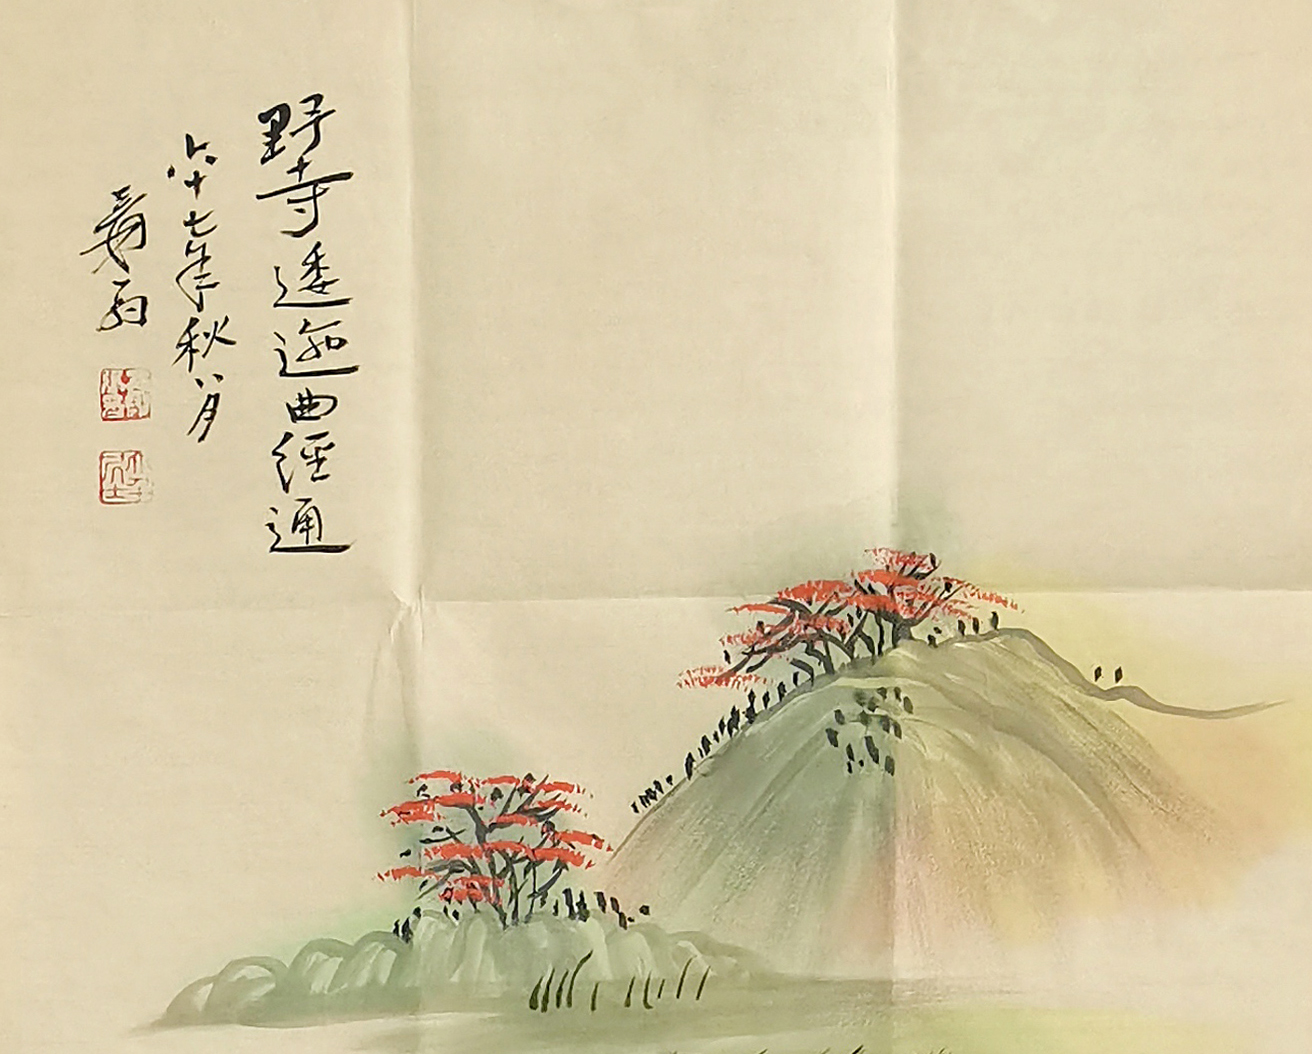 野寺逶迤曲經通
六十七年秋八月
爰翁